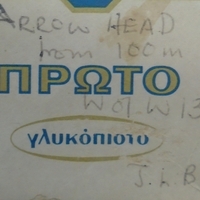 ARROW HEAD
from 100m
ΠΡΩΤΟ
W of W 13
γλυκόπιοτο
J.L.B